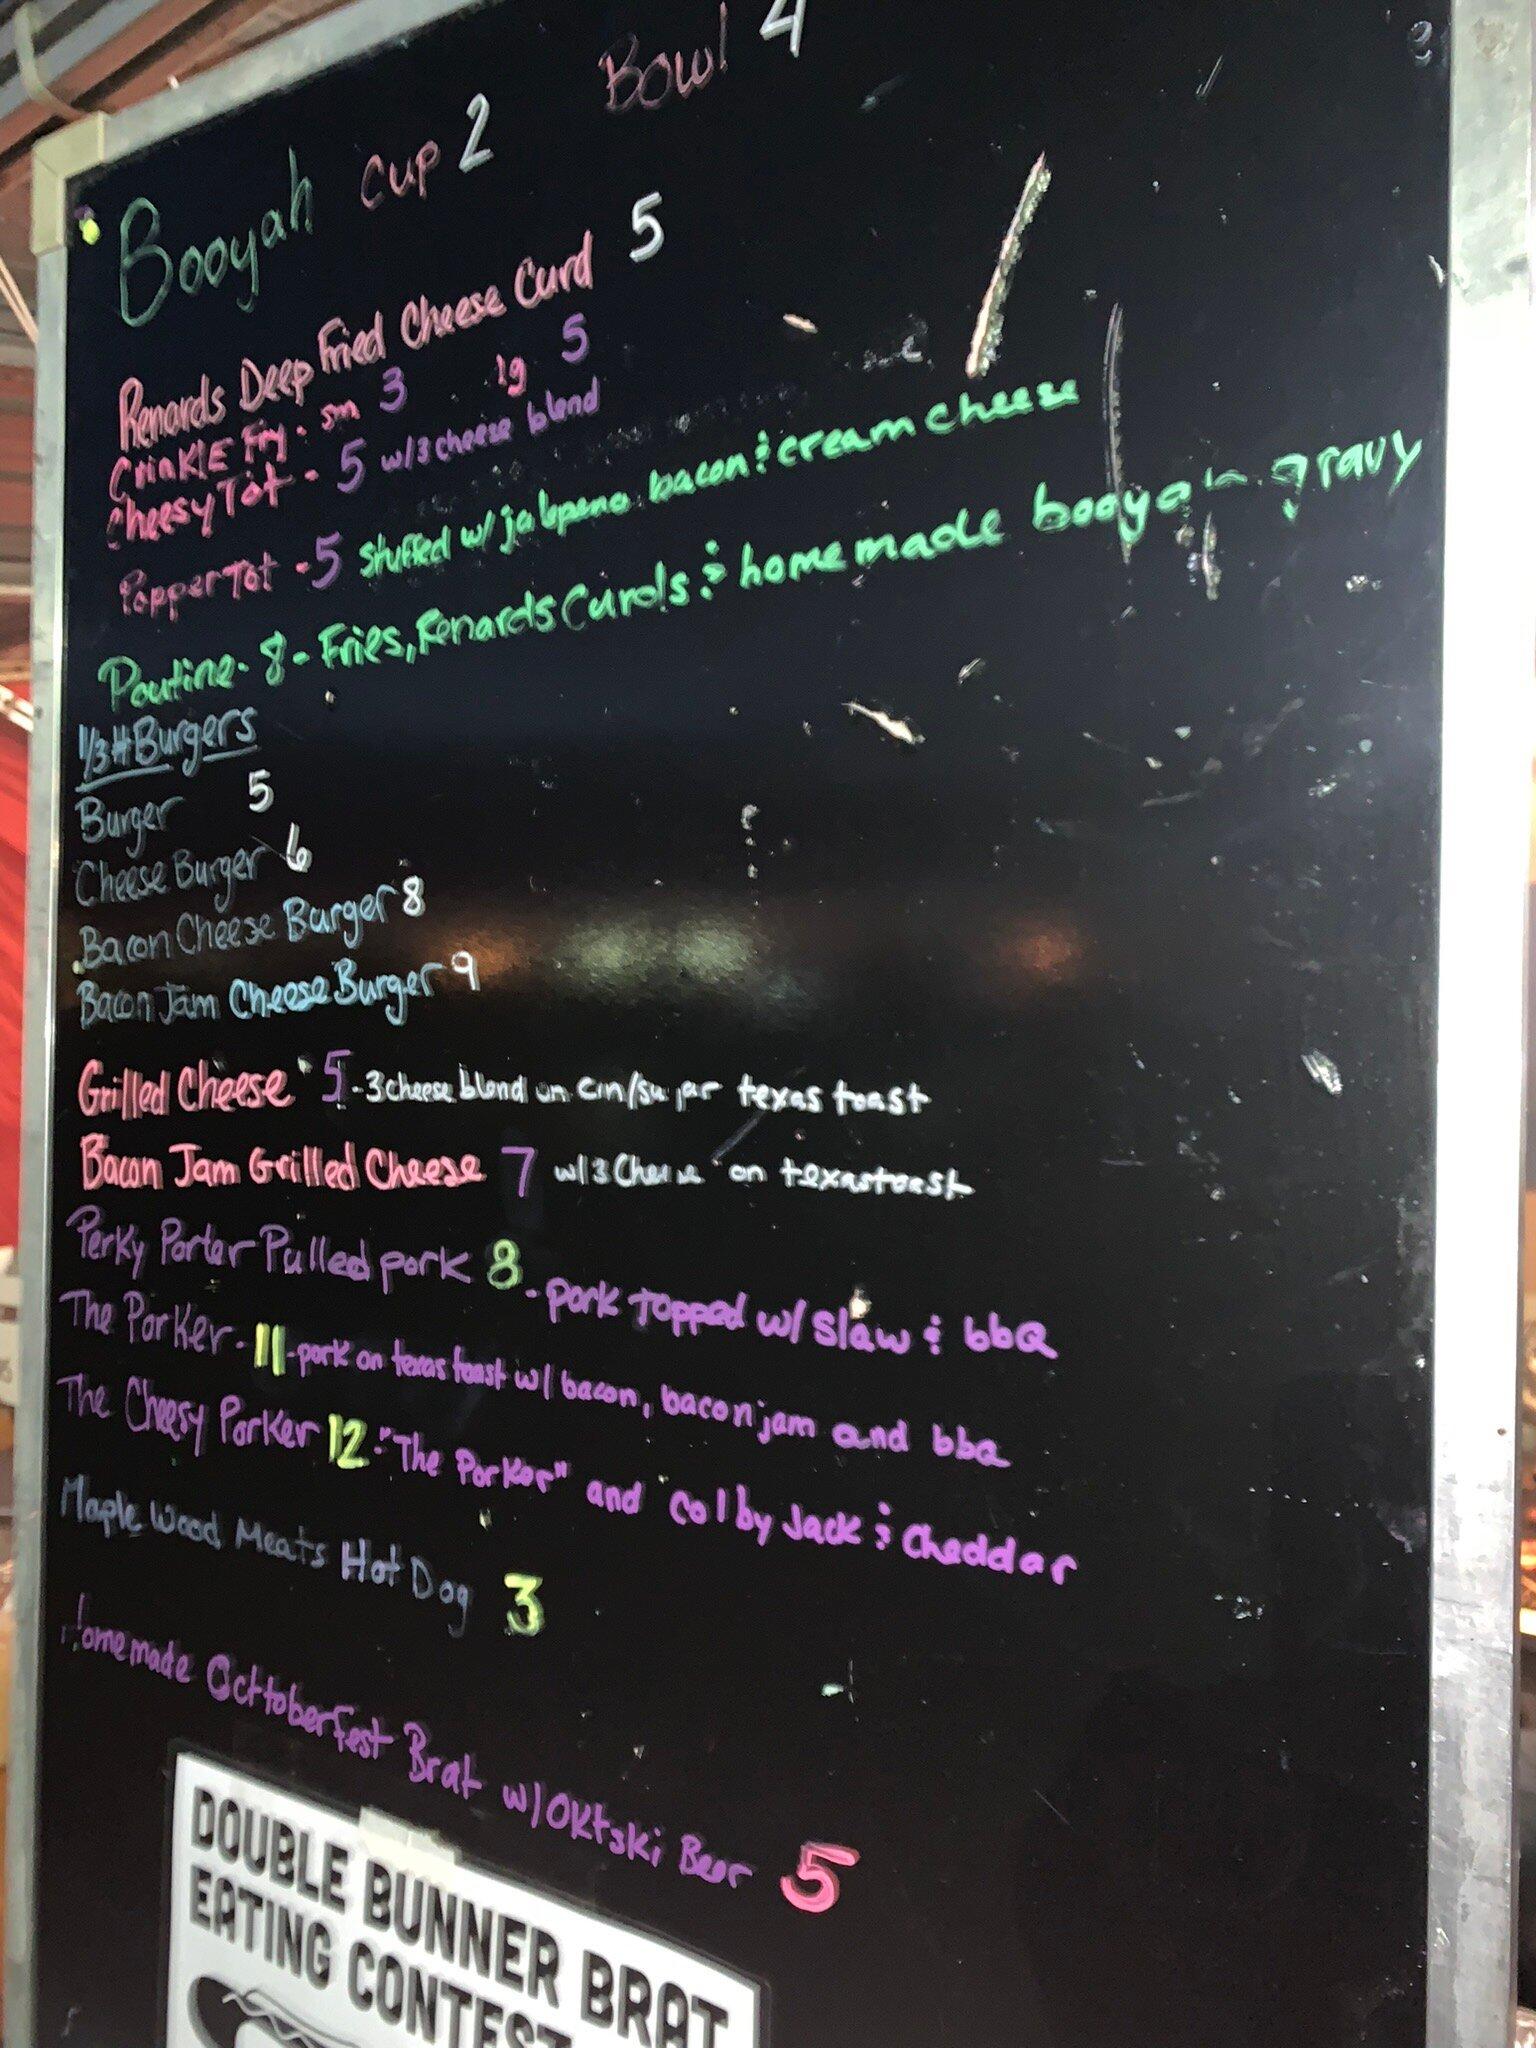 Booyah cup 2 Bowl 4
Renards Deep Fried Cheese Curd 5
Crinkle Fry - sm 3 lg 5
Cheesy Tot - 5 w/3 cheese blend
Popper Tot - 5 stuffed w/ jalepeno bacon & cream cheese
Poutine - 8 - Fries, Renards Curds & homemade booyah gravy
1/3# Burgers
Burger 5
Cheese Burger 6
Bacon Cheese Burger 8
Bacon Jam Cheese Burger 9
Grilled Cheese 5 - 3 cheese blend on cin/sugar texas toast
Bacon Jam Grilled Cheese 7 w/3 Cheese on texas toast
Perky Porter Pulled pork 8 - pork topped w/ slaw & bbQ
The Porker - 11 - pork on texas toast w/ bacon, bacon jam and bbQ
The Cheesy Porker 12 - "The Porker" and colby Jack & Cheddar
Maple Wood Meats Hot Dog 3
Homemade Octtoberfest Brat w/ Oktski Beer 5
DOUBLE BUNNER BRAT
EATING CONTEST